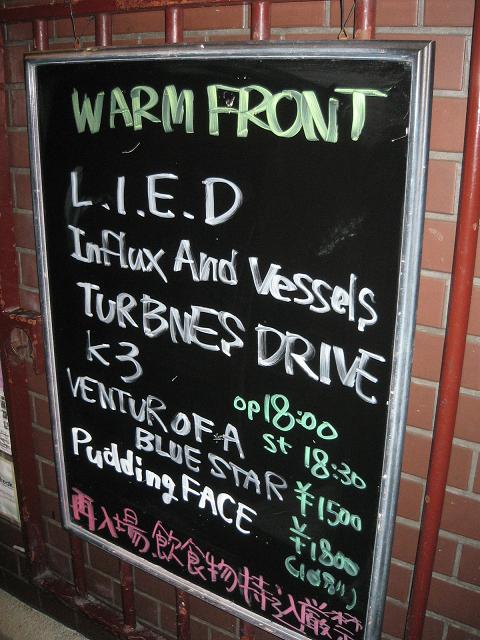 WARM FRONT
L.I.E.D
Influx And Vessels
TURBNES DRIVE
K3
VENTUR OF A
BLUE STAR
Pudding FACE
op18:00
st 18:30
¥1500
¥1800
(1d付)
再入場、飲食物持込厳禁